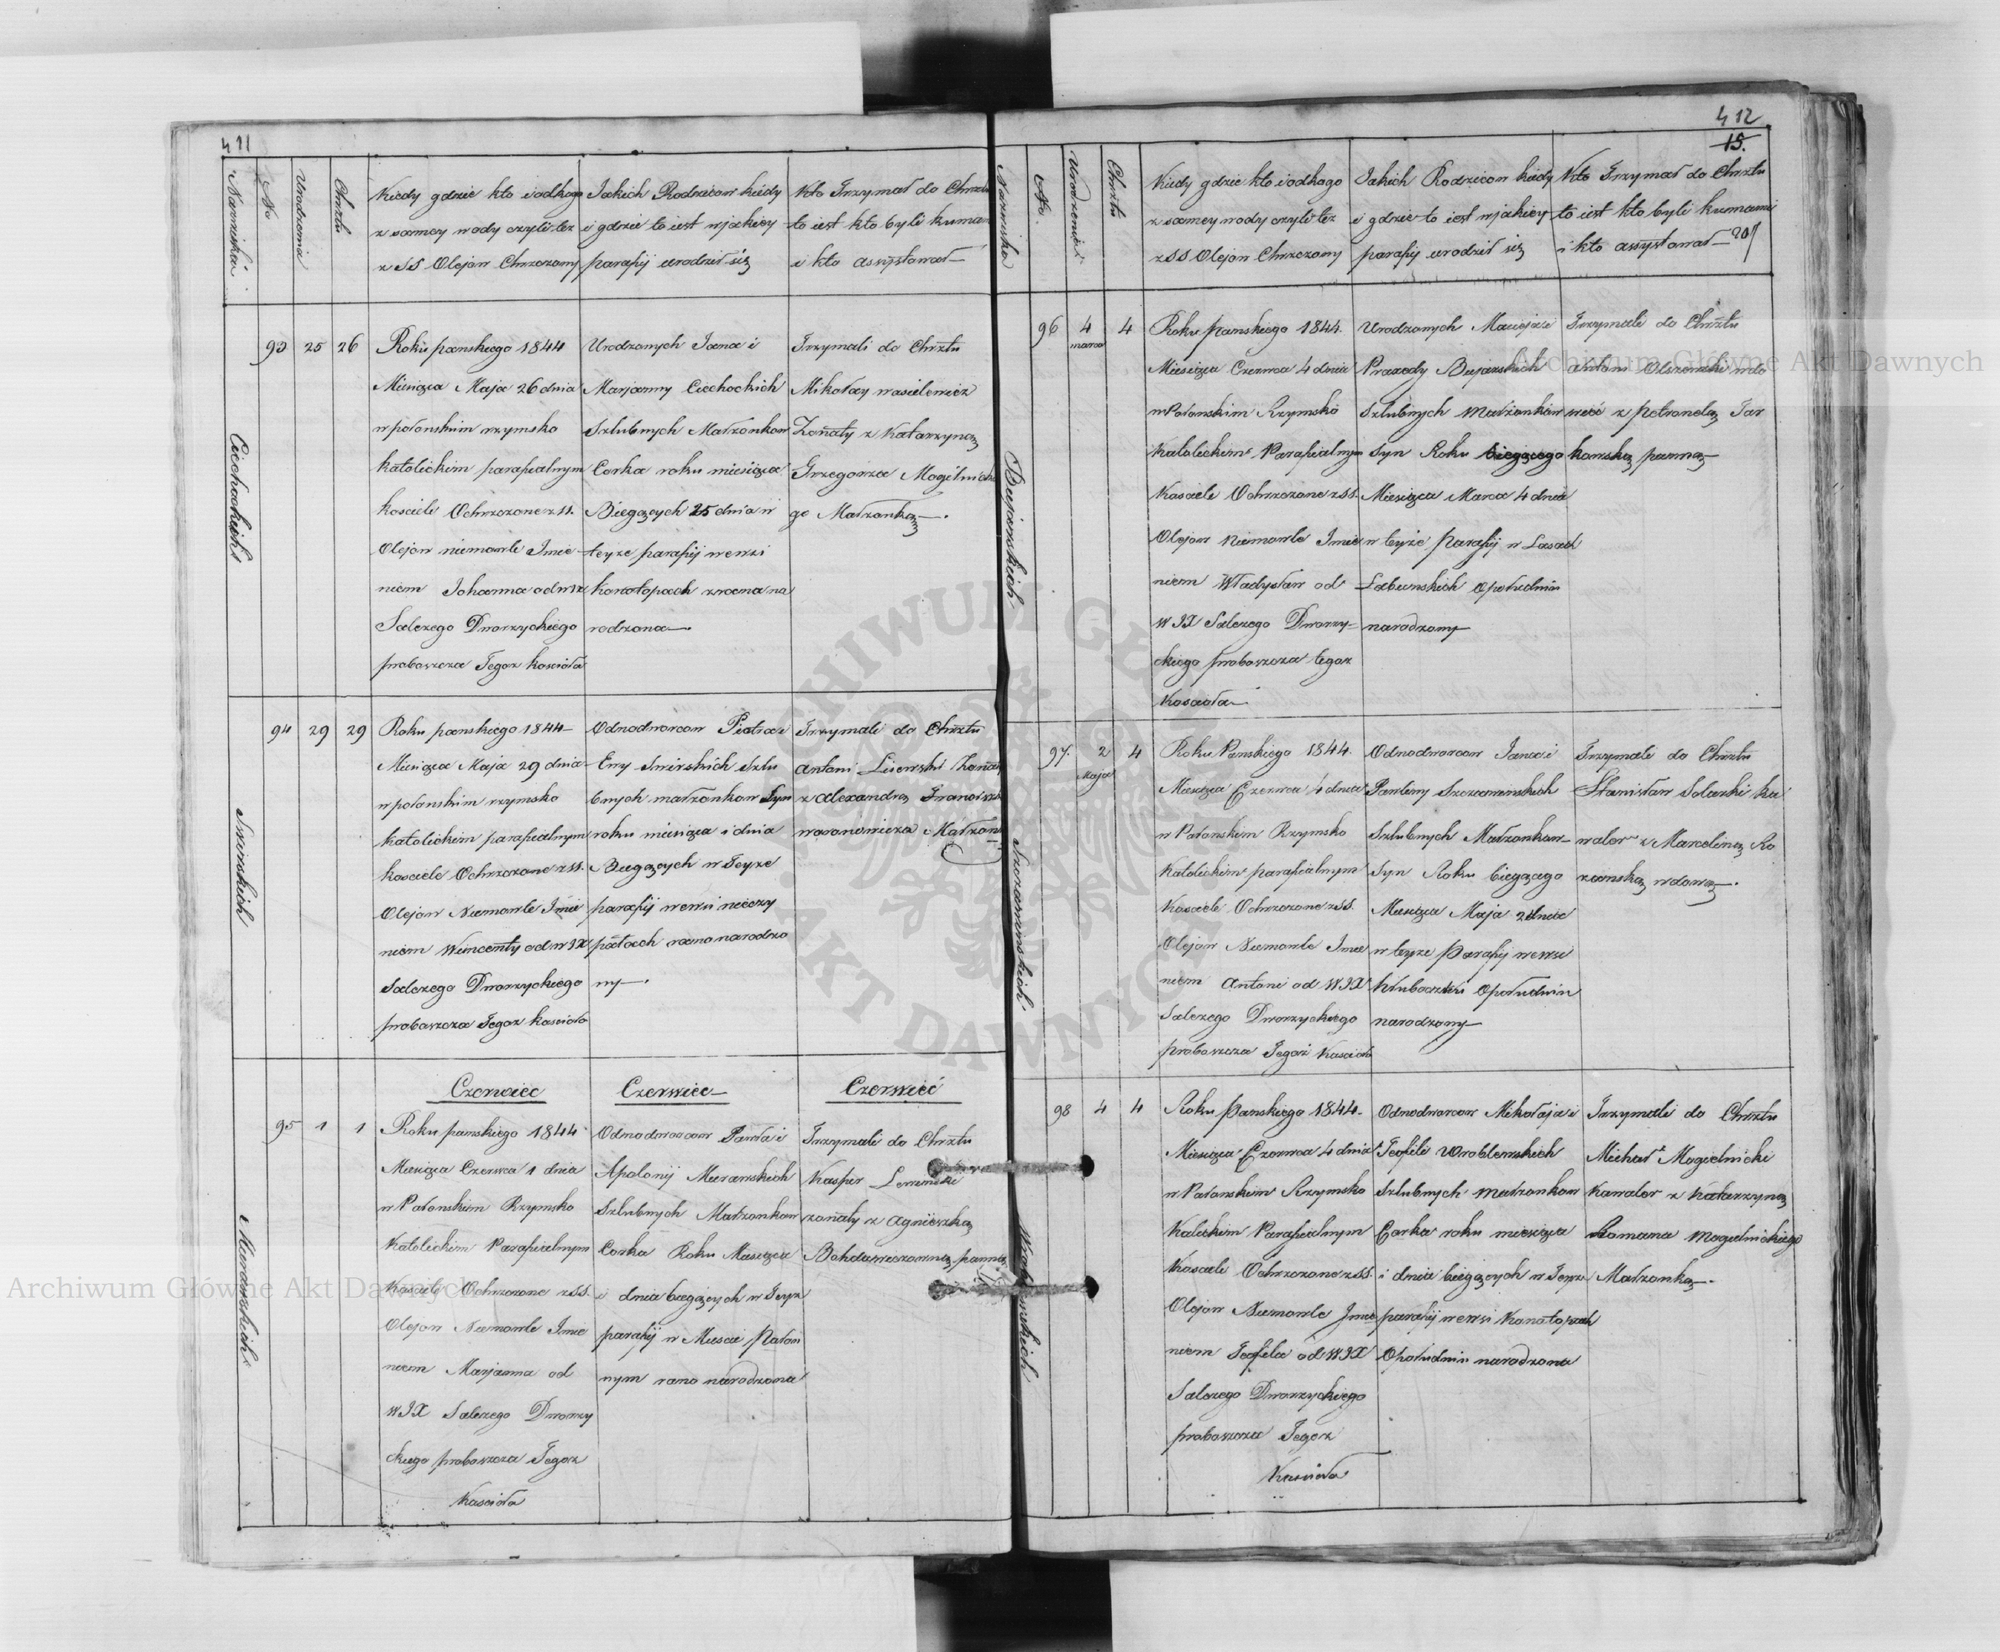 411
Nazwiska
No
Urodzenia
Chrztu
Kiedy gdzie kto i od kogo
z samey wody czyli tez
z SS Olejow Chrzczony
Jakich Rodzicow kiedy
i gdzie to iest w jakiey
parafij urodził się
Kto Trzymał do Chrztu
to iest kto byli kumami
i kto assystował
Ciechockich
93 25 26
Roku panskiego 1844
Miesiąca Maja 26 dnia
w połonskim rzymsko
katolickim parafialnym
kosciele Ochrzczone z SS.
Olejow niemowle Imie
niem Johanna od WJX
Salezego Dworzyckiego
proboszcza Tegoz kosciola
Urodzonych Jana i
Marjanny Ciechockich
Szlubnych Małzonkow
Corka roku miesiąca
Biegących 25 dnia w
teyze parafij we wsi
Konotopach zrana na
rodzona
Trzymali do Chrztu
Mikołay wasilewicz
Zonaty z Katarzyną
Grzegorza Mogilnickie
go Małzonką.
Swirskich
94 29 29
Roku panskiego 1844
Miesiąca Maja 29 dnia
w połonskim rzymsko
katolickim parafialnym
kosciele Ochrzczone z SS.
Olejow Niemowle Imie
niem Wincenty od WJX
Salezego Dworzyckiego
proboszcza Tegoz kosciola
Odnodworcow Piotra i
Ewy Swirskich Szlu
bnych małzonkow Syn
roku miesiąca i dnia
Biegących w Teyze
parafij we wsi
rano narodzo
ny.
Trzymali do Chrztu
Antoni Lisowski Zonaty
z Alexandrą
Małzon
Murawskich
Czerwiec
Czerwiec
Czerwieć
95 1 1
Roku panskiego 1844
Miesiąca Czerwca 1 dnia
w Połonskim Rzymsko
Katolickim Parafialnym
Kosciele Ochrzczone z SS.
Olejow Niemowle Imie
niem Marjanna od
WJX Salezego Dworzy
ckiego proboszcza Tegoz
Kosciola
Odnodworcow Pawła i
Apolonij Murawskich
Szlubnych Małzonkow
Corka Roku Miesiąca
i dnia biegących w Teyze
parafij w Miescie Połon
nym rano narodzona
Trzymali do Chrztu
Kasper Lewinski
zonaty z Agnieszką
panną
412
15.
Nazwiska
No.
Urodzenia
Chrztu
Kiedy gdzie kto i od kogo
z samey wody czyli tez
z SS Olejow Chrzczony
Jakich Rodzicow kiedy
i gdzie to iest w jakiey
parafij urodził się
Kto Trzymał do Chrztu
to iest kto byli kumami
i kto assystował
Bujarskich
96 4 marca 4
Roku panskiego 1844.
Miesiąca Czerwca 4 dnia
w Połonskim Rzymsko
Katolickim Parafialnym
Kosciele Ochrzczone z SS.
Olejow Niemowle Imie
niem Władysław od
WJX Salezego Dworzy
ckiego proboszcza tegoz
Kosciola
Urodzonych Macieja i
Praxedy Bujarskich
Szlubnych Małzonkow
Syn Roku biegącego
Miesiąca Marca 4 dnia
w teyże Parafij w Lasach
Łabunskich Opołudniu
narodzony
Trzymali do Chrztu
Antoni Olszewski wdo
wiec z Petronelą Jar
kowską panną
Szczawinskich
97. 2 Maja 4
Roku Panskiego 1844.
Miesiąca Czerwca 4 dnia
w Połonskim Rzymsko
Katolickim parafialnym
Kosciele Ochrzczone z SS.
Olejow Niemowle Imie
niem Antoni od WJX
Salezego Dworzyckiego
proboszcza Tegoż Kosciola
Odnodworcow Jana i
Pawliny Szczawinskich
Szlubnych Małzonkow
Syn Roku biegącego
Miesiąca Maja 2 dnia
w teyze Parafij we wsi
Opołudniu
narodzony
Trzymali do Chrztu
Stanisław Solecki Ka
waler z Marceliną Ro
zanską wdową.
Wroblewskich
98 4 4
Roku Panskiego 1844
Miesiąca Czerwca 4 dnia
w Połonskim Rzymsko
Katolickim Parafialnym
Kosciele Ochrzczone z SS.
Olejow Niemowle Imie
niem Teofila od WJX
Salezego Dworzyckiego
proboszcza Tegoz
Kosciola
Odnodworcow Mikołaja i
Teofili Wroblewskich
Szlubnych Małzonkow
Corka roku miesiąca
i dnia biegących w Teyze
parafij we wsi Konotopach
Opołudniu narodzona
Trzymali do Chrztu
Michał Mogielnicki
Kawaler z Katarzyną
Romana Mogielnickiego
Małzonką.
Archiwum Główne Akt Dawnych
Archiwum Główne Akt Dawnych
ARCHIWUM GŁÓWNE AKT DAWNYCH